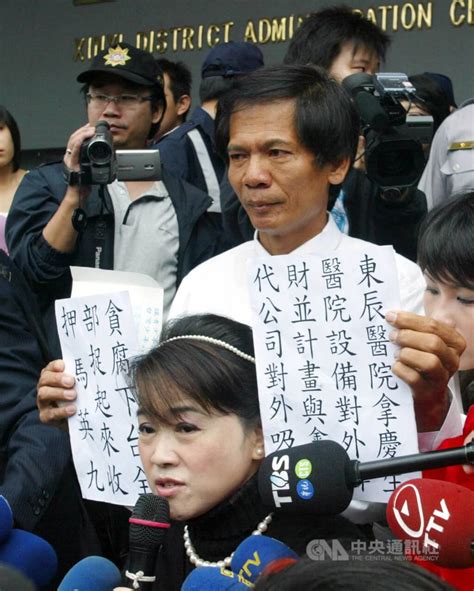 XINYI DISTRICT ADMINISTRATION CE
Panasonic
東辰醫院拿慶生
醫院設備對外
財並計畫與
代公司對外吸
貪腐下台全
部捉起來收
押馬英九
TVBS
TTV
TTV
CNA 中央通訊社
THE CENTRAL NEWS AGENCY